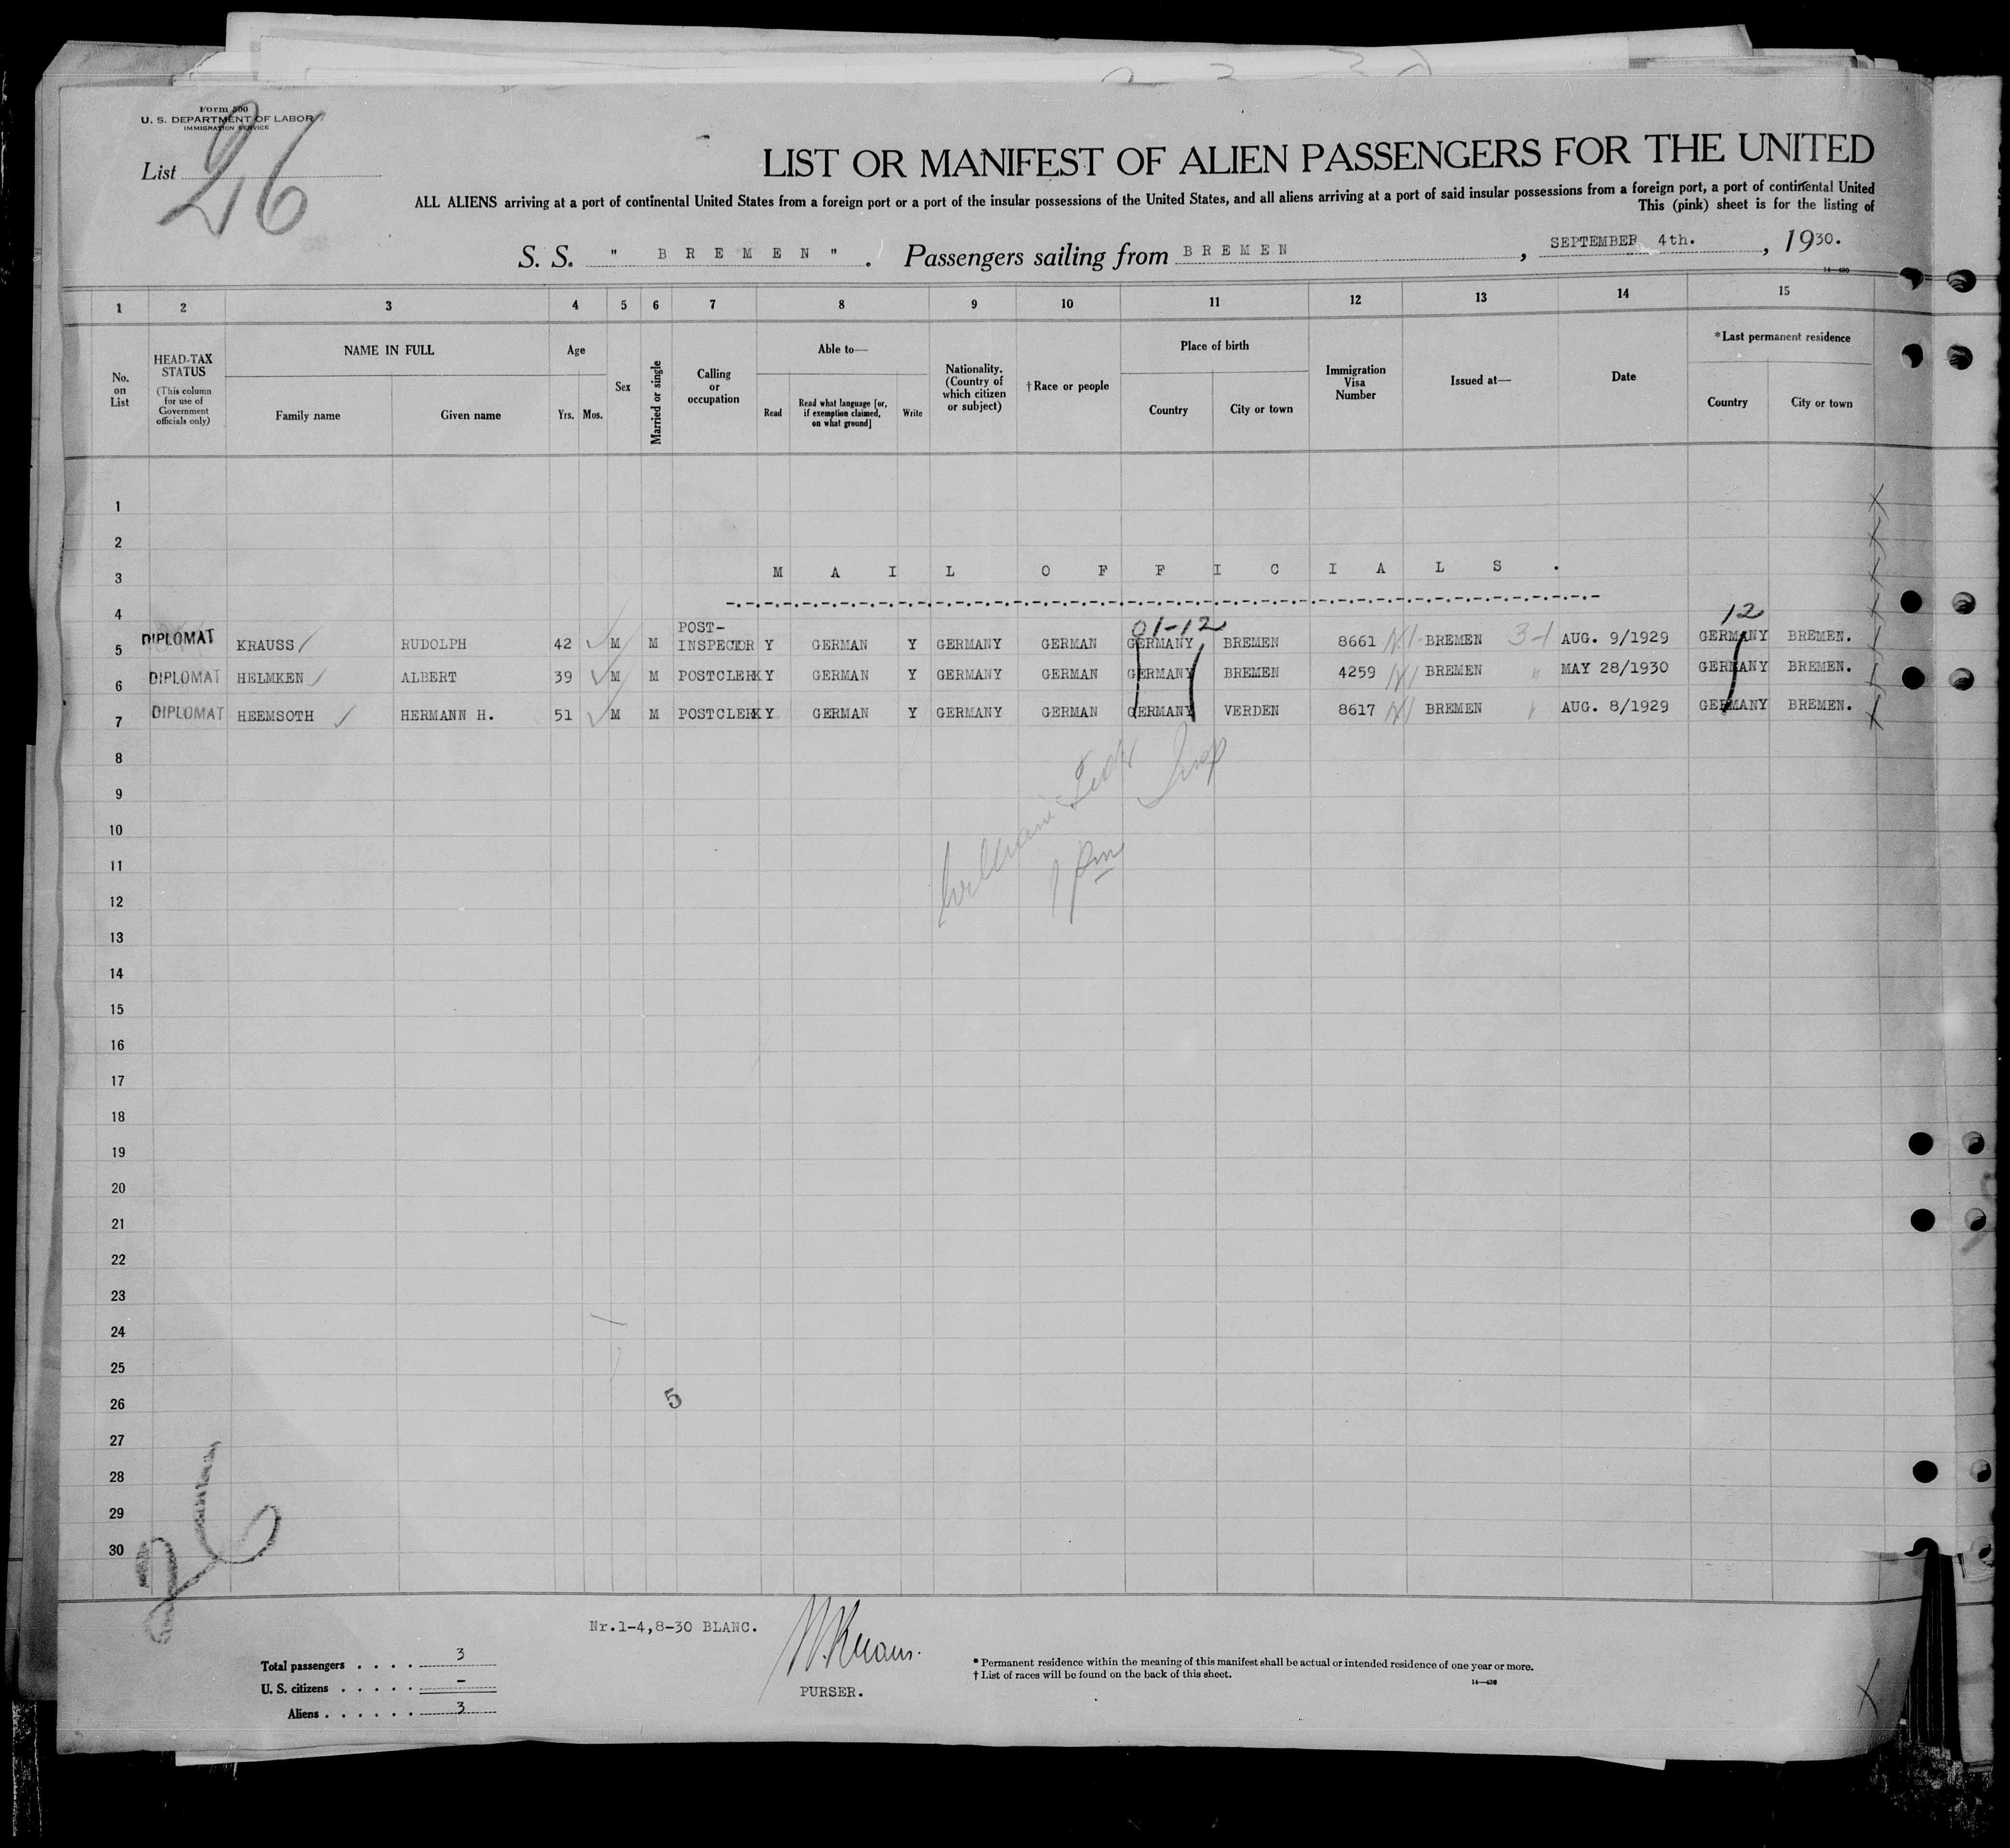 Form 500
U. S. DEPARTMENT OF LABOR
IMMIGRATION SERVICE
List 26
LIST OR MANIFEST OF ALIEN PASSENGERS FOR THE UNITED
ALL ALIENS arriving at a port of continental United States from a foreign port or a port of the insular possessions of the United States, and all aliens arriving at a port of said insular possessions from a foreign port, a port of continental United
This (pink) sheet is for the listing of
S. S. " B R E M E N " . Passengers sailing from B R E M E N , SEPTEMBER 4th. , 1930.
1 2 3 4 5 6 7 8 9 10 11 12 13 14 15
No. on List
HEAD-TAX STATUS (This column for use of Government officials only)
NAME IN FULL
Family name Given name
Age
Yrs. Mos.
Sex
Married or single
Calling or occupation
Able to—
Read Read what language [or, if exemption claimed, on what ground] Write
Nationality. (Country of which citizen or subject)
†Race or people
Place of birth
Country City or town
Immigration Visa Number
Issued at—
Date
*Last permanent residence
Country City or town
1
2
3 M A I L O F F I C I A L S .
4
01-12 12
5 DIPLOMAT KRAUSS RUDOLPH 42 M M POST-INSPECTOR Y GERMAN Y GERMANY GERMAN GERMANY BREMEN 8661 BREMEN 3-1 AUG. 9/1929 GERMANY BREMEN.
6 DIPLOMAT HELMKEN ALBERT 39 M M POSTCLERK Y GERMAN Y GERMANY GERMAN GERMANY BREMEN 4259 BREMEN " MAY 28/1930 GERMANY BREMEN.
7 DIPLOMAT HEEMSOTH HERMANN H. 51 M M POSTCLERK Y GERMAN Y GERMANY GERMAN GERMANY VERDEN 8617 BREMEN " AUG. 8/1929 GERMANY BREMEN.
8
9
10
11
1 Pm
12
13
14
15
16
17
18
19
20
21
22
23
24
25
26 5
27
28
29
30
26
Nr.1-4,8-30 BLANC.
Total passengers . . . . 3
U. S. citizens . . . . . -
Aliens . . . . . . 3
PURSER.
* Permanent residence within the meaning of this manifest shall be actual or intended residence of one year or more.
† List of races will be found on the back of this sheet.
14—430